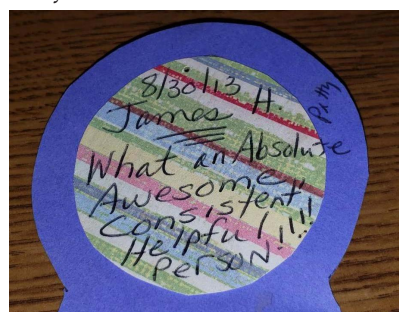 8/30/13 H.
James
What an Absolute
Awesome,
Consistent,
Helpful!!!!
Person!
Patty